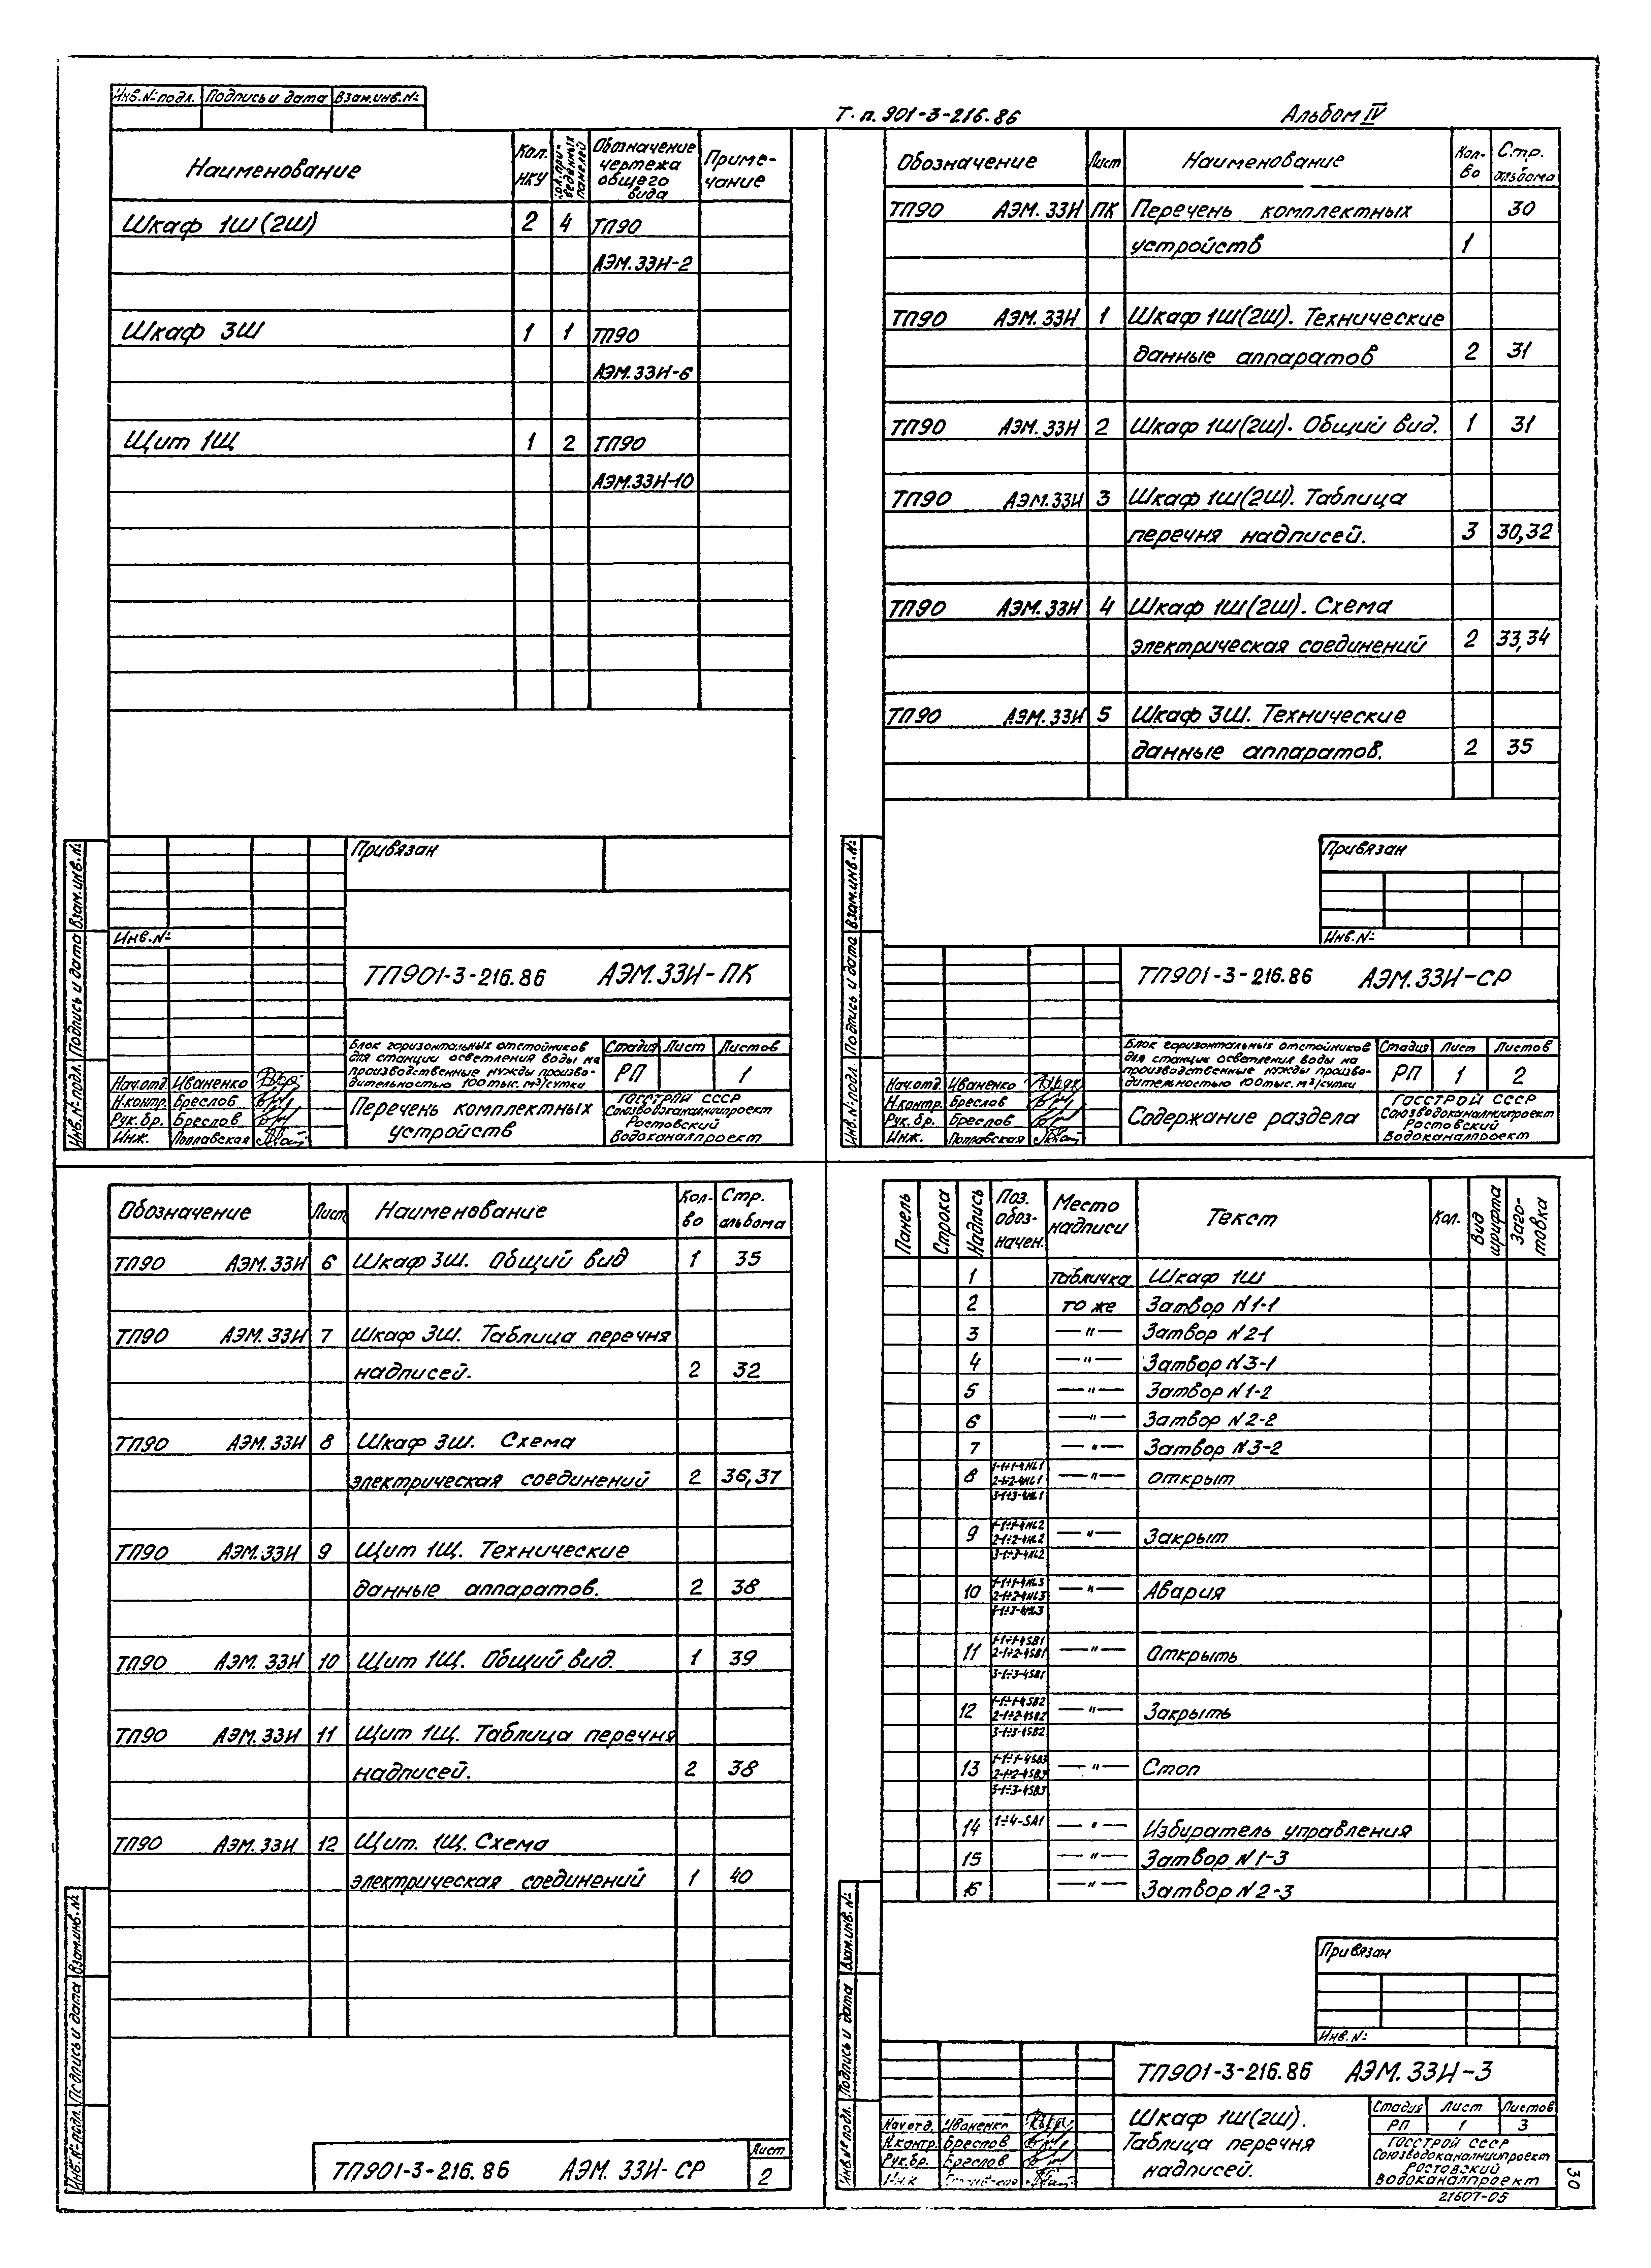 Т.п. 901-3-216.86 Альбом IV
Инв.№подл. Подпись и дата Взам.инв.№
Наименование Кол. НКУ Кол. приведенных панелей Обозначение чертежа общего вида Примечание
Шкаф 1Ш(2Ш) 2 4 ТП90
АЭМ.33И-2
Шкаф 3Ш 1 1 ТП90
АЭМ.33И-6
Щит 1Щ 1 2 ТП90
АЭМ.33И-10
Привязан
Инв.№
ТП901-3-216.86 АЭМ.33И-ПК
Блок горизонтальных отстойников
для станции осветления воды на
производственные нужды произво-
дительностью 100тыс. м³/сутки
Стадия Лист Листов
РП 1
Нач.отд. Иваненко
Н.контр. Бреслов
Рук.бр. Бреслов
Инж. Поплавская
Перечень комплектных
устройств
ГОССТРОЙ СССР
Союзводоканалниипроект
Ростовский
Водоканалпроект
Инв.№подл. Подпись и дата Взам.инв.№
Обозначение Лист Наименование Кол-во Стр. альбома
ТП90 АЭМ.33И ПК Перечень комплектных 30
устройств 1
ТП90 АЭМ.33И 1 Шкаф 1Ш(2Ш). Технические
данные аппаратов 2 31
ТП90 АЭМ.33И 2 Шкаф 1Ш(2Ш). Общий вид. 1 31
ТП90 АЭМ.33И 3 Шкаф 1Ш(2Ш). Таблица
перечня надписей. 3 30,32
ТП90 АЭМ.33И 4 Шкаф 1Ш(2Ш). Схема
электрическая соединений 2 33,34
ТП90 АЭМ.33И 5 Шкаф 3Ш. Технические
данные аппаратов. 2 35
Привязан
Инв.№
ТП901-3-216.86 АЭМ.33И-СР
Блок горизонтальных отстойников
для станции осветления воды на
производственные нужды произво-
дительностью 100тыс. м³/сутки
Стадия Лист Листов
РП 1 2
Нач.отд. Иваненко
Н.контр. Бреслов
Рук.бр. Бреслов
Инж. Поплавская
Содержание раздела
ГОССТРОЙ СССР
Союзводоканалниипроект
Ростовский
Водоканалпроект
Инв.№подл. Подпись и дата Взам.инв.№
Обозначение Лист Наименование Кол-во Стр. альбома
ТП90 АЭМ.33И 6 Шкаф 3Ш. Общий вид 1 35
ТП90 АЭМ.33И 7 Шкаф 3Ш. Таблица перечня
надписей. 2 32
ТП90 АЭМ.33И 8 Шкаф 3Ш. Схема
электрическая соединений 2 36,37
ТП90 АЭМ.33И 9 Щит 1Щ. Технические
данные аппаратов. 2 38
ТП90 АЭМ.33И 10 Щит 1Щ. Общий вид. 1 39
ТП90 АЭМ.33И 11 Щит 1Щ. Таблица перечня
надписей. 2 38
ТП90 АЭМ.33И 12 Щит. 1Щ. Схема
электрическая соединений 1 40
Инв.№подл. Подпись и дата Взам.инв.№
ТП901-3-216.86 АЭМ. 33И-СР
Лист
2
Панель Строка Надпись Поз. обоз-начен. Место надписи Текст Кол. Вид шрифта Заго-товка
1 Табличка Шкаф 1Ш
2 то же Затвор N1-1
3 —"— Затвор N2-1
4 —"— Затвор N3-1
5 —"— Затвор N1-2
6 —"— Затвор N2-2
7 —"— Затвор N3-2
8 1-1÷1-4HL1 —"— Открыт
2-1÷2-4HL1
3-1÷3-4HL1
9 1-1÷1-4HL2 —"— Закрыт
2-1÷2-4HL2
3-1÷3-4HL2
10 1-1÷1-4HL3 —"— Авария
2-1÷2-4HL3
3-1÷3-4HL3
11 1-1÷1-4SB1 —"— Открыть
2-1÷2-4SB1
3-1÷3-4SB1
12 1-1÷1-4SB2 —"— Закрыть
2-1÷2-4SB2
3-1÷3-4SB2
13 1-1÷1-4SB3 —"— Стоп
2-1÷2-4SB3
3-1÷3-4SB3
14 1÷4-SA1 —"— Избиратель управления
15 —"— Затвор N1-3
16 —"— Затвор N2-3
Привязан
Инв.№
ТП901-3-216.86 АЭМ.33И-3
Нач.отд. Иваненко
Н.контр. Бреслов
Рук.бр. Бреслов
Инж
Шкаф 1Ш(2Ш).
Таблица перечня
надписей.
Стадия Лист Листов
РП 1 3
ГОССТРОЙ СССР
Союзводоканалниипроект
Ростовский
Водоканалпроект
Инв.№подл. Подпись и дата Взам.инв.№
21607-05
30